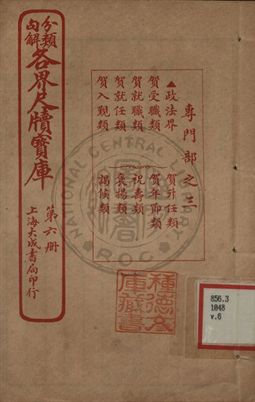 分類
句解
各界尺牘寶庫
第六册
上海大成書局印行
專門部之三
▲政法界
賀升任類
賀受職類
賀年節類
賀就職類
祝壽類
賀就任類
褒揚類
賀入覲類
謁候類
NATIONAL CENTRAL LIBRARY
ROC
856.3
1048
v.6